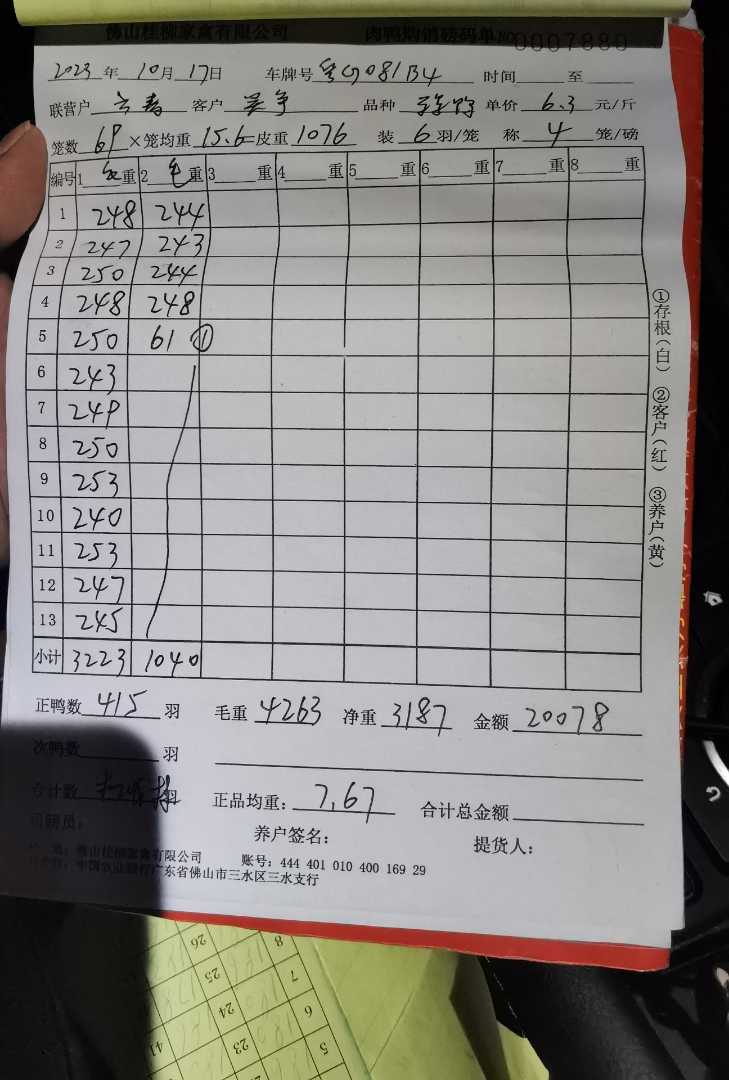 佛山桂柳家禽有限公司 肉鸭购销磅码单 No 0007880
2023年10月17日 车牌号 081B4 时间 至
联营户 客户 品种 单价 6.3 元/斤
笼数 69 × 笼均重 15.6 = 皮重 1076 装 6 羽/笼 称 4 笼/磅
编号 1 毛 重 2 毛 重 3 重 4 重 5 重 6 重 7 重 8 重
1 248 244
2 247 243
3 250 244
4 248 248
5 250 61 ①
6 243
7 249
8 250
9 253
10 240
11 253
12 247
13 245
小计 3223 1040
①存根(白) ②客户(红) ③养户(黄)
正鸭数 415 羽 毛重 4263 净重 3187 金额 20078
次鸭数 羽
合计数 羽 正品均重: 7.67 合计总金额
司磅员: 养户签名: 提货人:
佛山桂柳家禽有限公司 账号: 444 401 010 400 169 29
中国农业银行广东省佛山市三水区三水支行
8 26
7 25
6 24
5 23
41